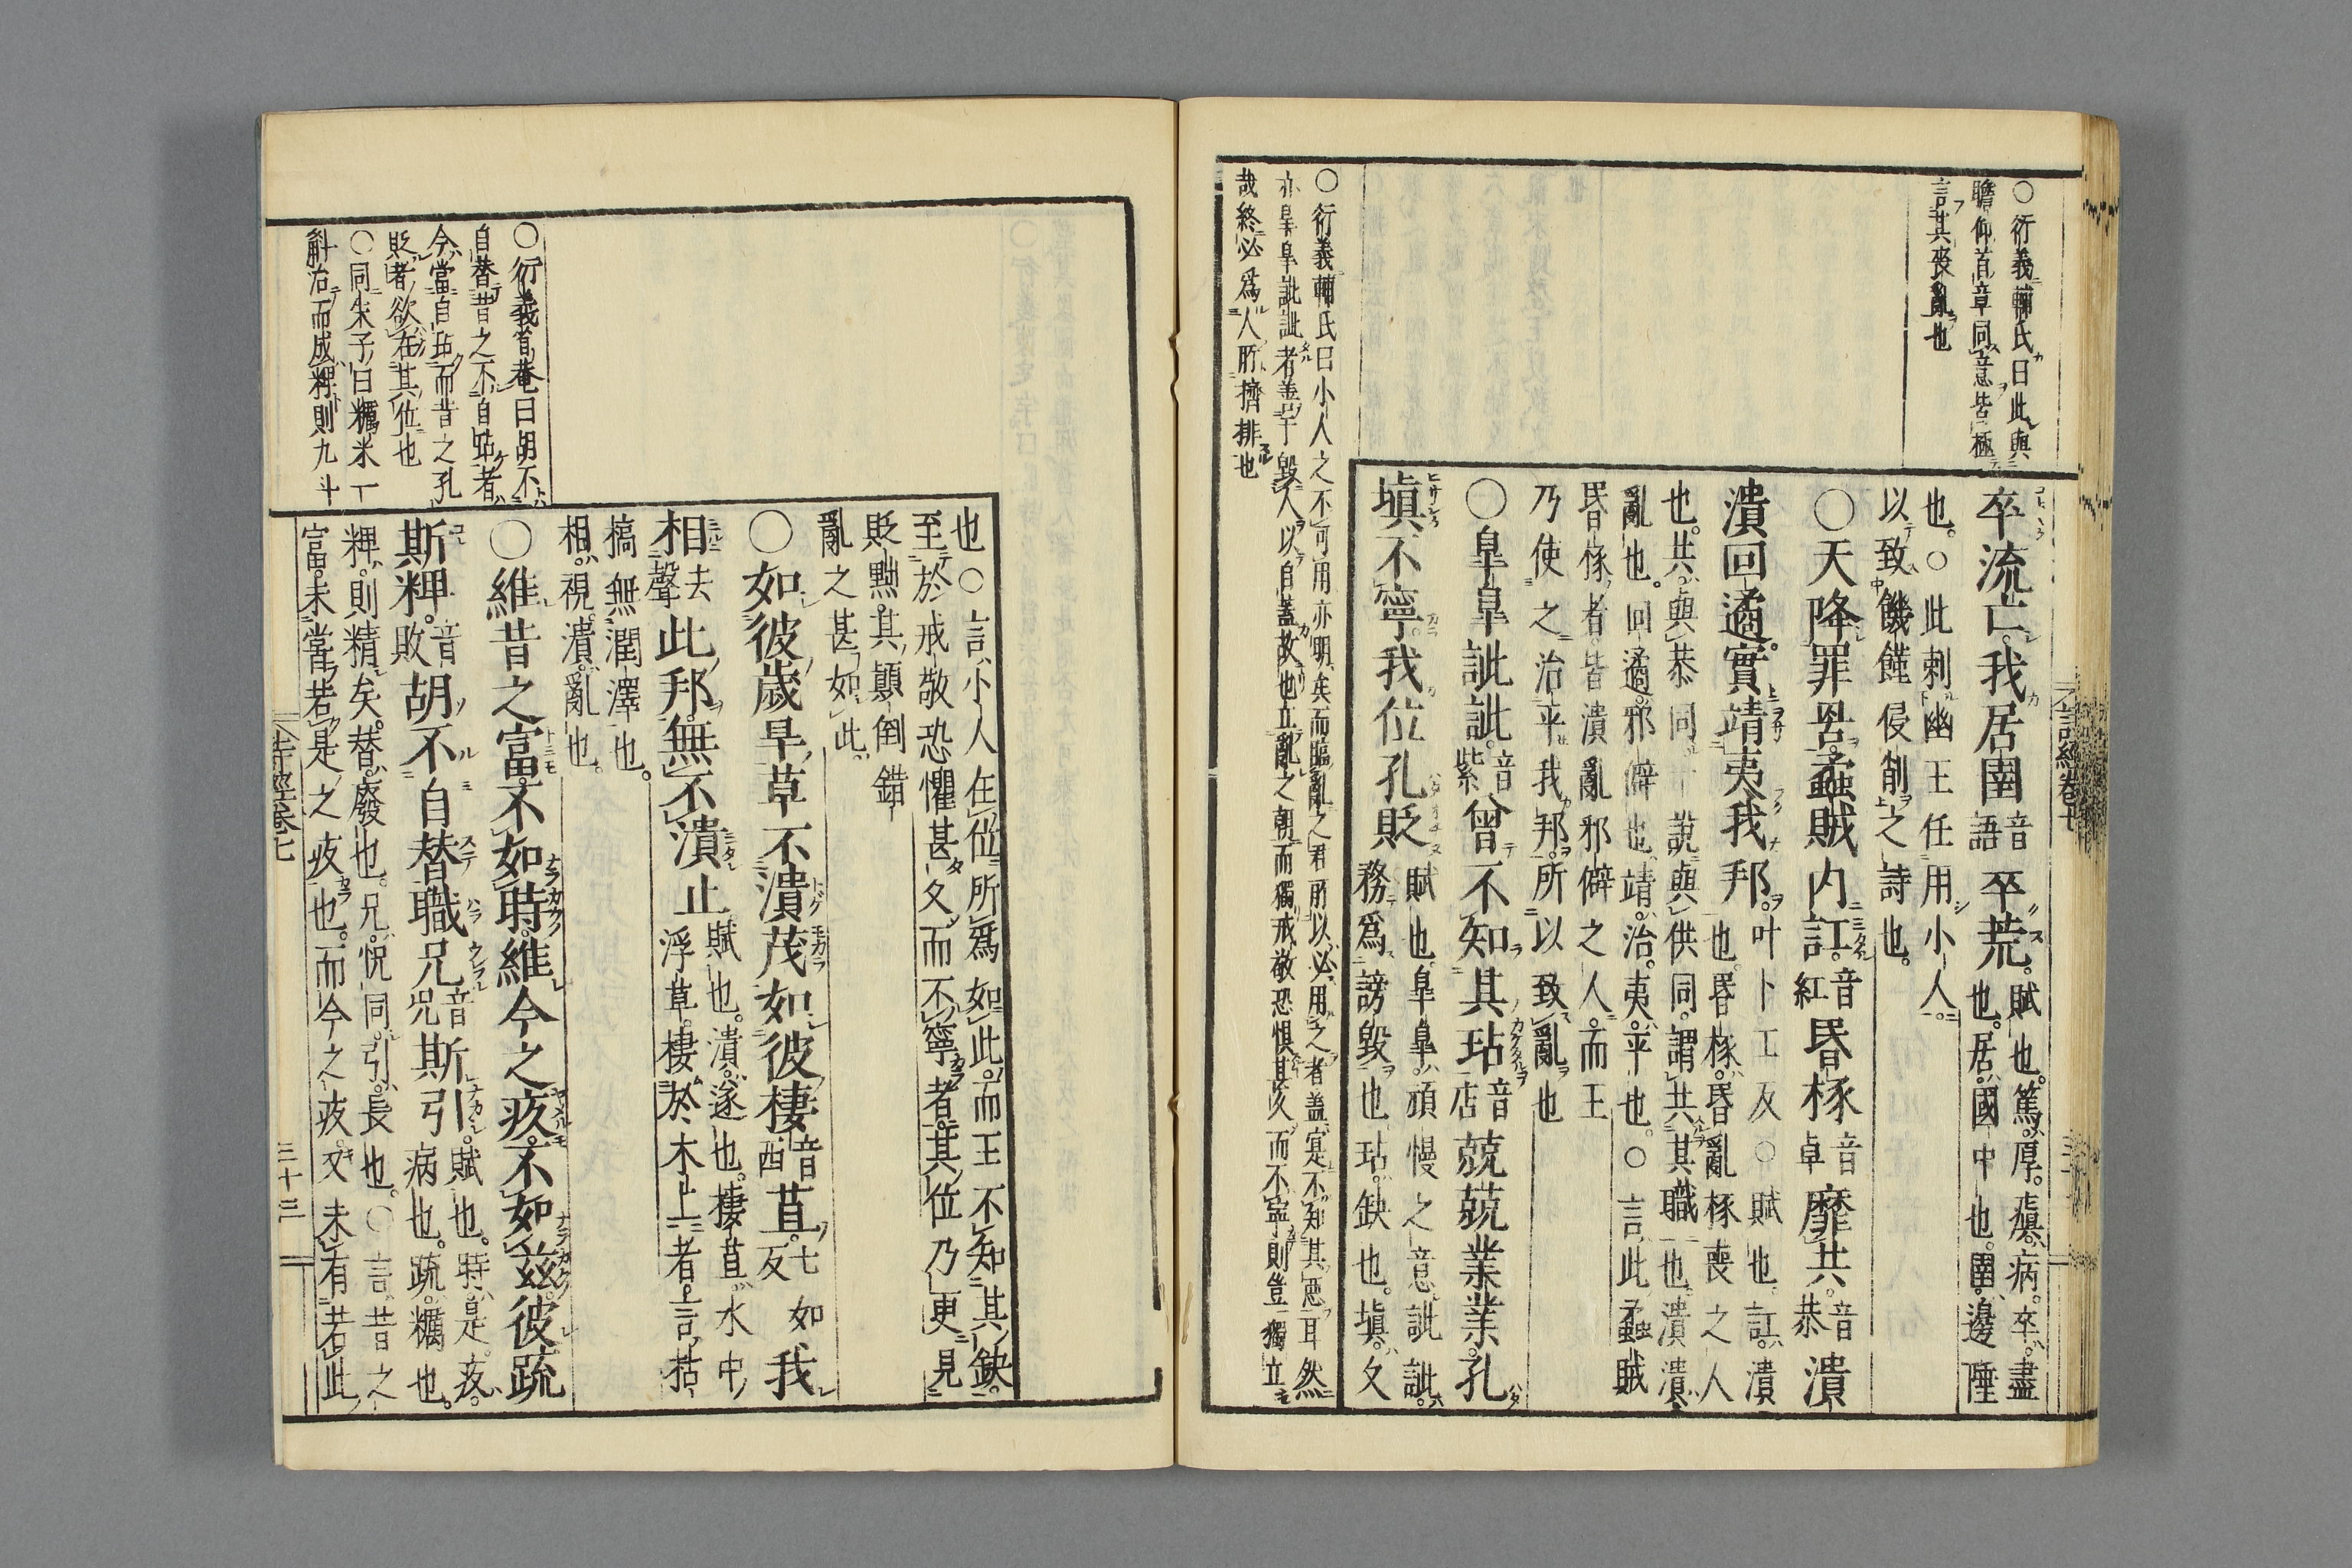 ○衍義輔氏曰此與
瞻仰首章同意皆極
言其喪亂也
卒流亡我居圉音語卒荒賦也篤厚瘨病卒盡
也居國中也圉邊陲
也○此刺幽王任用小人
以致饑饉侵削之詩也
○天降罪罟蟊賊內訌音紅昏椓音卓靡共音恭潰
潰回遹實靖夷我邦叶卜工反○賦也訌潰
也昏椓昏亂椓喪之人
也共與恭同一說與供同謂共其職也潰潰
亂也回遹邪僻也靖治夷平也○言此蟊賊
昏椓者皆潰亂邪僻之人而王
乃使之治平我邦所以致亂也
○皐皐訿訿音紫曾不知其玷音店兢兢業業孔
填不寧我位孔貶賦也皐皐頑慢之意訿訿
務爲謗毀也玷缺也填久
○衍義輔氏曰小人之不可用亦明矣而臨亂之君所以必用之者蓋寔不知其惡耳然
亦皐皐訿訿者善乎毀人以自蓋故也立亂之朝而獨戒敬恐懼其久而不寧則豈獨立
哉終必爲人所擠排也
也○言小人在位所爲如此而王不知其缺
至於戒敬恐懼甚久而不寧者其位乃更見
貶黜其顚倒錯
亂之甚如此
○如彼歲旱草不潰茂如彼棲音西苴七反如我
相去聲此邦無不潰止賦也潰遂也棲苴水中
浮草棲於木上者言枯
槁無潤澤也
相視潰亂也
○維昔之富不如時維今之疚不如茲彼疏
斯粺音敗胡不自替職兄音況斯引賦也時是疚
病也疏糲也
粺則精矣替廢也兄怳同引長也○言昔之
富未嘗若是之疚也而今之疚又未有若此
○衍義首菴曰胡不
自替昔之不自玷者
今當自玷而昔之孔
貶者欲在其位也
○同朱子曰糲米一
斛治而成粺則九斗
詩經卷七
三十三